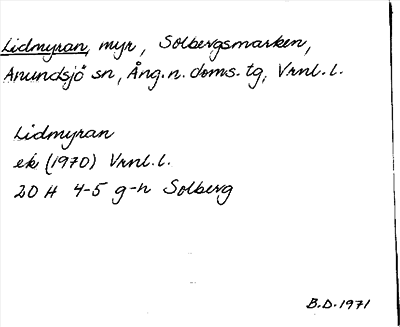 Lidmyran, myr, Solbergsmarken,
Anundsjö sn, Ång. n. doms. tg, Vrnl. l.
Lidmyran
ek (1970) Vrnl. l.
20 H 4-5 g-h Solberg
B.D. 1971